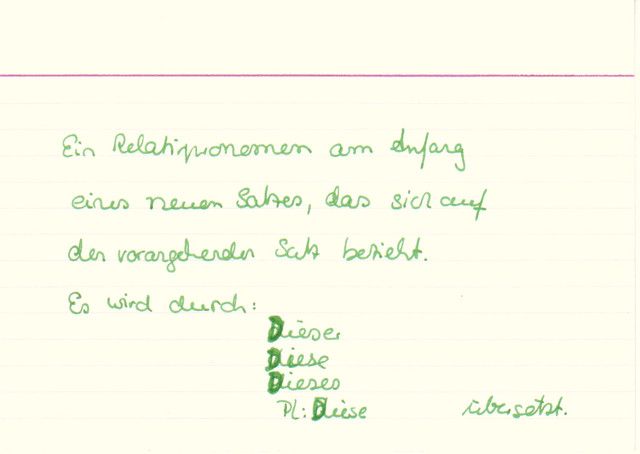 Ein Relativpronomen am Anfang
eines neuen Satzes, das sich auf
den vorangehenden Satz bezieht.
Es wird durch:
Dieser
Diese
Dieses
Pl: Diese übersetzt.